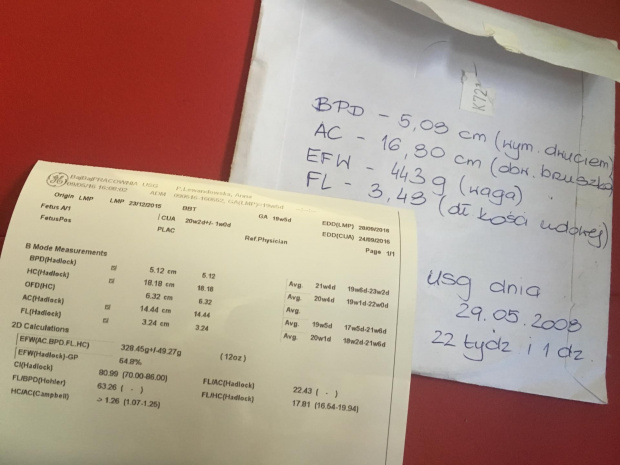 K72
BPD - 5,08 cm (wym. główem)
AC - 16,80 cm (obw. brzuszka)
EFW - 443 g (waga)
FL - 3,43 (dł kości udowej)
usg dnia
29.05.2008
22 tydz i 1 dz.
GE PRACOWNIA USG
09/05/16 ADM
Origin LMP LMP 23/12/2015 BBT GA 19w5d EDD(LMP) 28/09/2016
Fetus A/1 CUA 20w2d+/- 1w0d EDD(CUA) 24/09/2016
FetusPos PLAC Ref.Physician Page 1/1
B Mode Measurements
BPD(Hadlock) 5.12 cm 5.12 Avg. 21w4d 19w6d-23w2d
HC(Hadlock) 18.18 cm 18.18 Avg. 20w4d 19w1d-22w0d
OFD(HC) 6.32 cm 6.32
AC(Hadlock) 14.44 cm 14.44 Avg. 19w5d 17w5d-21w6d
FL(Hadlock) 3.24 cm 3.24 Avg. 20w1d 18w2d-21w6d
2D Calculations
EFW(AC,BPD,FL,HC) 328.45g+/-49.27g (12oz)
EFW(Hadlock)-GP 64.8%
CI(Hadlock) 80.99 (70.00-86.00) FL/AC(Hadlock) 22.43 ( - )
FL/BPD(Hohler) 63.26 ( - ) FL/HC(Hadlock) 17.81 (16.54-19.94)
HC/AC(Campbell) -> 1.26 (1.07-1.25)